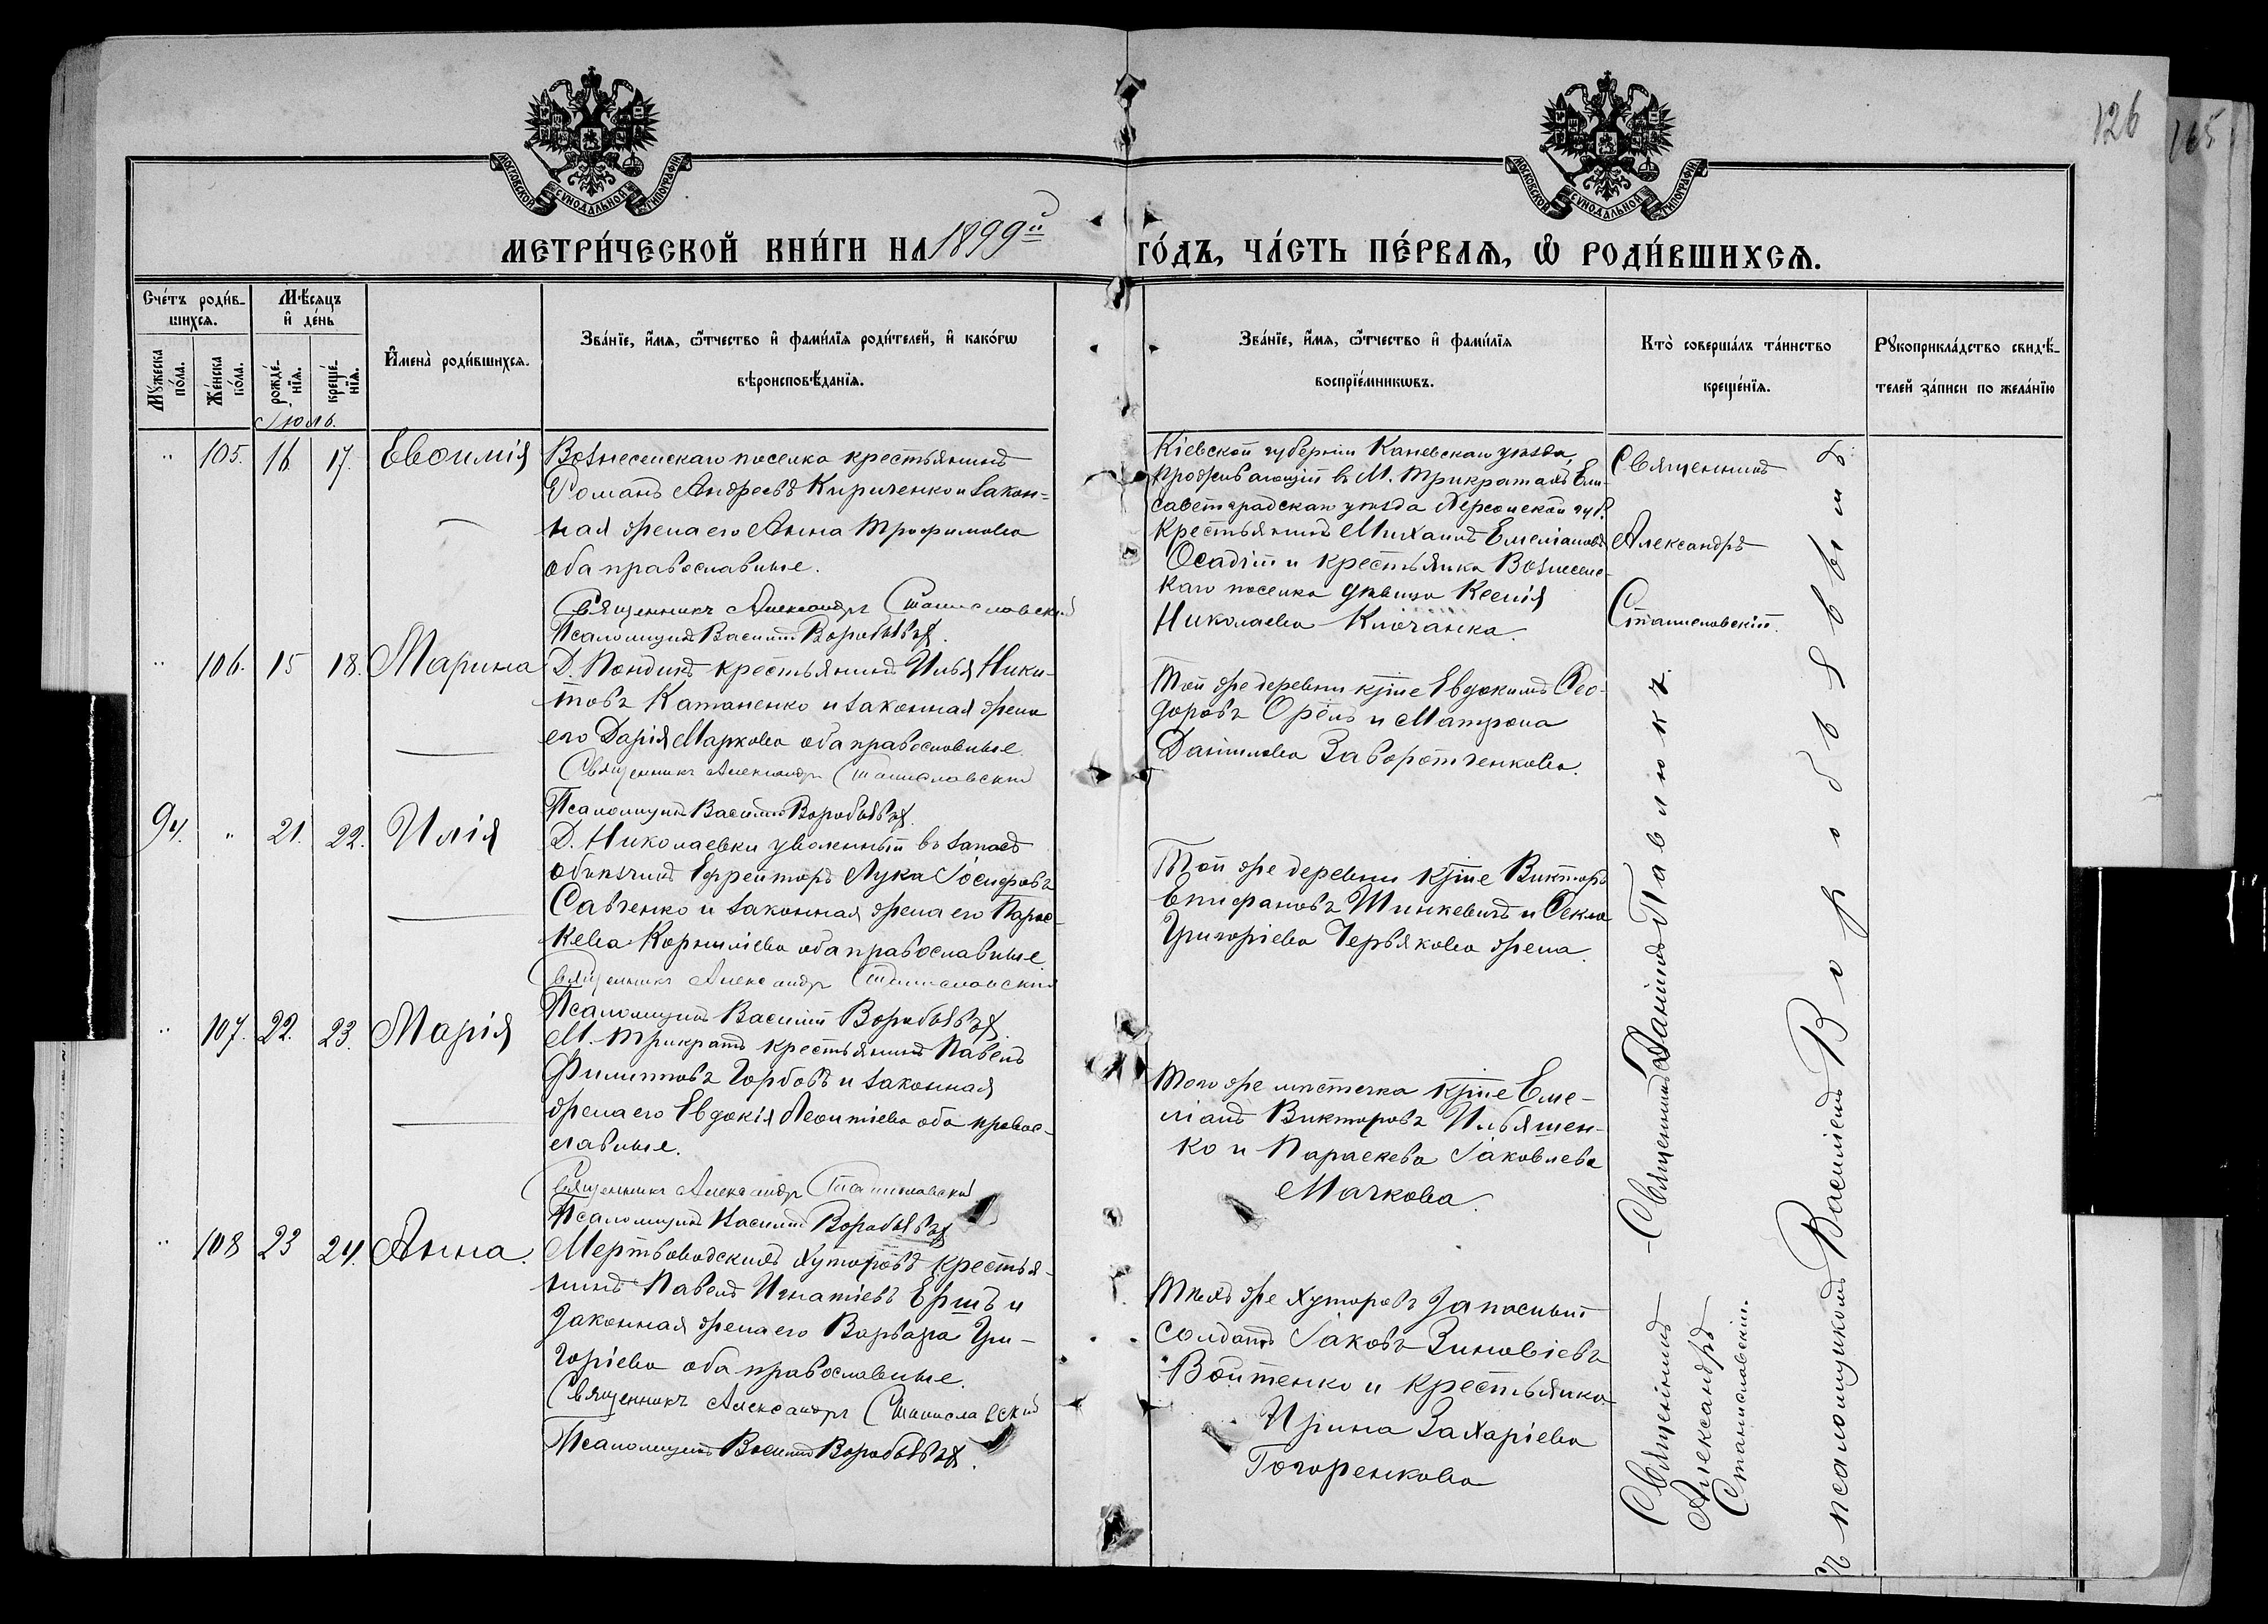 126
165
МОСКОВСКОЙ СѴНОДАЛЬНОЙ ТИПОГРАФІИ
МОСКОВСКОЙ СѴНОДАЛЬНОЙ ТИПОГРАФІИ
МЕТРИ́ЧЕСКОЙ КНИ́ГИ НА 1899й ГО́ДЪ, ЧА́СТЬ ПЕ́РВАѦ, Ѡ҆ РОДИ́ВШИХСѦ.
Сче́тъ роди́в-
шихсѧ.
Мꙋ́жеска по́ла.
Же́нска по́ла.
Мѣ́сѧцъ
и҆ де́нь
рожде́-
нїѧ.
креще́-
нїѧ.
И҆мена̀ роди́вшихсѧ.
Зва́нїе, и҆́мѧ, ѻ҆́тчество и҆ фами́лїѧ роди́телей, и҆ како́гѡ
вѣроисповѣ́данїѧ.
Зва́нїе, и҆́мѧ, ѻ҆́тчество и҆ фами́лїѧ
воспрїе́мникѡвъ.
Кто̀ соверша́лъ та́инство
креще́нїѧ.
Рꙋкоприкла́дство свидѣ́-
телей за́писи по жела́нїю
Іюль.
" 105. 16. 17. Евѳимія
Вознесенскаго поселка крестьянинъ
Романъ Андреевъ Кириченко и закон=
ная жена его Анна Трофимова
оба православные.
Священникъ Александръ Станиславскій
Псаломщикъ Василій Воробьевъ
Кіевской губерніи Каневскаго уѣзда,
проживающій въ М. Трикратахъ Ели-
саветградскаго уѣзда Херсонской губ.
крестьянинъ Михаилъ Емеліановъ
Осадчій и крестьянка Вознесенс-
каго поселка дѣвица Ксенія
Николаева Клочанка.
Священникъ
Александръ
Станиславскій.
" 106. 15 18. Марина
Д. Пондика крестьянинъ Илья Ники-
товъ Катаненко и законная жена
его Дарія Маркова оба православные.
Священникъ Александръ Станиславскій
Псаломщикъ Василій Воробьевъ.
Той же деревни кр̃не Евдокимъ Ѳео-
доровъ Орелъ и Матрона
Даніилова Заворотченкова.
94. " 21. 22. Илія
Д. Николаевки уволенный въ запасъ
объѣзчикъ Ефрейторъ Лука Іосифовъ
Савченко и законная жена его Парас-
кева Корниліева оба православные.
Священникъ Александръ Станиславскій
Псаломщикъ Василій Воробьевъ
Той же деревни кр̃не Викторъ
Епифановъ Шинкевичъ и Ѳекла
Григоріева Червякова жена.
" 107. 22. 23. Марія
М. Трикратъ крестьянинъ Павелъ
Филипповъ Горбовъ и законная
жена его Евдокія Леонтіева оба правос-
лавные.
Священникъ Александръ Станиславскій
Псаломщикъ Василій Воробьевъ
Того же мѣстечка кр̃не Еме-
ліанъ Викторовъ Ильяшен-
ко и Параскева Іаковлева
Мачкова.
" 108 23 24. Анна.
Мертвоводскихъ хуторовъ крестья-
нинъ Павелъ Игнатіевъ Ершъ и
Законная жена его Варвара Гри-
горіева оба православные.
Священникъ Александръ Станиславскій
Псаломщикъ Василій Воробьевъ.
Тѣхъ же хуторовъ Запасный
солдатъ Іаковъ Зиновіевъ
Войтенко и крестьянка
Ирина Захаріева
Гогоренкова
Священникъ Даніилъ Павлюкъ.
Священникъ
Александръ
Станиславскій.
Съ псаломщикомъ Василіемъ Воробьевымъ